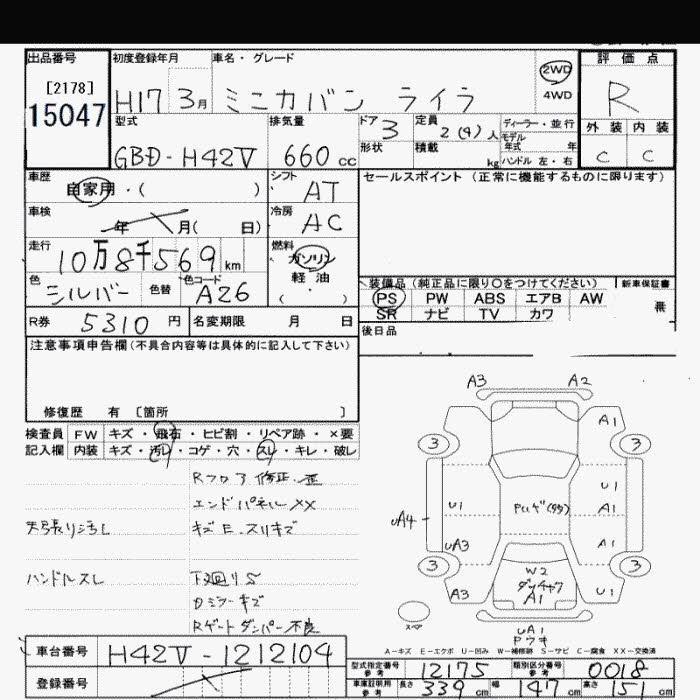 出品番号
[2178]
15047
初度登録年月
H17 3月
車名・グレード
ミニカバン ライラ
2WD
4WD
評価点
R
外装 内装
C C
型式
GBD-H42V
排気量
660 cc
ドア
3
形状
定員
2(4)人
積載
kg
ディーラー・並行
モデル
年式 年
ハンドル 左・右
車歴
自家用・( )
シフト
AT
車検
年 月( 日)
冷房
AC
走行
10万8千569 km
燃料
ガソリン
軽油
( )
色
シルバー
色替
色コード
A26
R券 5310 円
名変期限 月 日
セールスポイント (正常に機能するものに限ります)
装備品 (純正品に限り〇をつけてください)
新車保証書
無
PS PW ABS エアB AW
SR ナビ TV カワ
後日品
注意事項申告欄(不具合内容等は具体的に記入して下さい)
修復歴 有 〔箇所 〕
検査員
記入欄
FW キズ・飛石・ヒビ割・リペア跡・×要
内装 キズ・汚レ・コゲ・穴・スレ・キレ・破レ
Rフロア修正・歪
エンドパネルXX
天張り汚レ
キズE.スリキズ
ハンドルスレ
下廻りS
Dミラーキズ
Rゲートダンパー不良
A3 A2
A1
3 3
U1
U1
A1
UA4
UA3
A1
3 3
W2
A1
A3
U1
スペア
UA1
Pウキ
A-キズ E-エクボ U-凹み W-補修跡 S-サビ C-腐食 XX-交換済
車台番号 H42V-1212104
登録番号
型式指定番号
参考
12175
類別区分番号
参考
0018
車庫証明用
参考
長さ 339 cm 幅 147 cm 高さ 151 cm